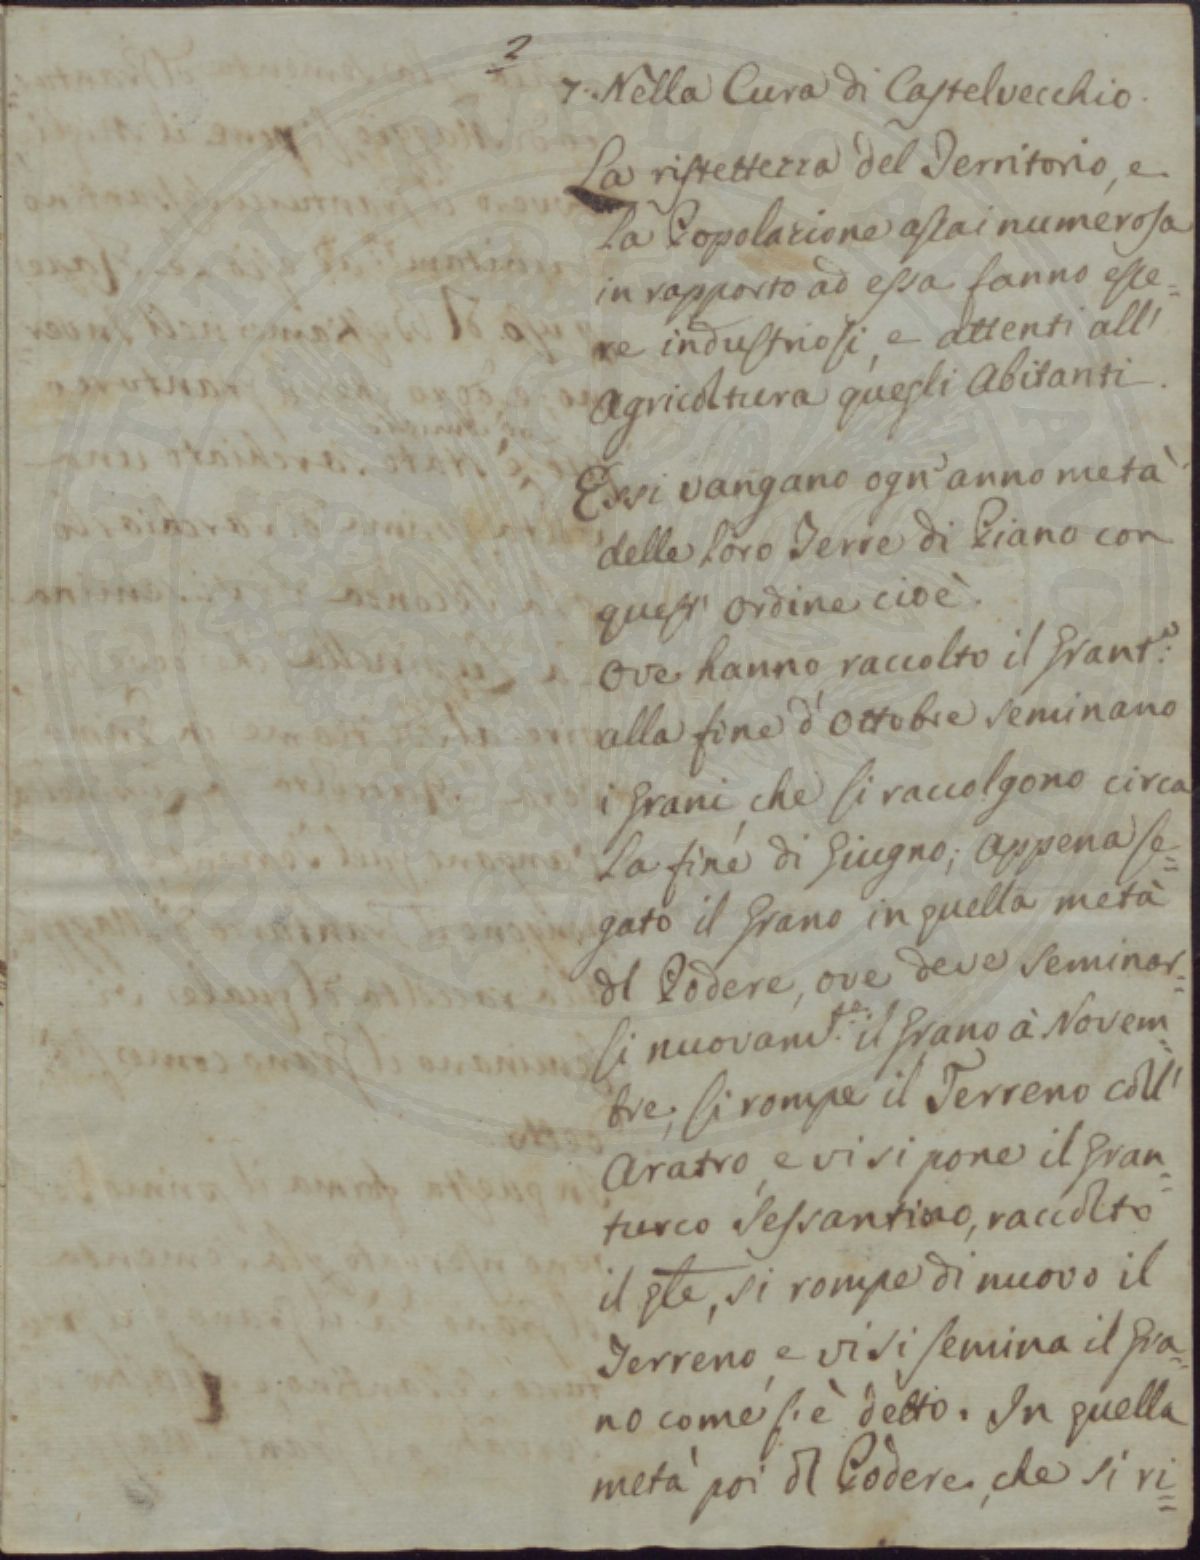 2
7. Nella Cura di Castelvecchio.
La ristettezza del Territorio, e
la Popolazione assai numerosa
in rapporto ad essa fanno esse=
re industriosi, e attenti all'
agricoltura quegli Abitanti.
Essi vangano ogn'anno metà
delle loro Terre di Piano con
quest' ordine cioè.
Ove hanno raccolto il Grant.o
alla fine d'Ottobre seminano
i Grani, che si raccolgono circa
la fine di Giugno; appena se=
gato il Grano in quella metà
dl Podere, ove deve seminar=
si nuovam.te il Grano à Novem=
bre, si rompe il Terreno coll'
Aratro, e vi si pone il Gran=
turco Sessantino, raccolto
il qle, si rompe di nuovo il
Terreno, e vi si semina il Gra=
no come s'è detto. In quella
metà poi dl Podere, che si ri=